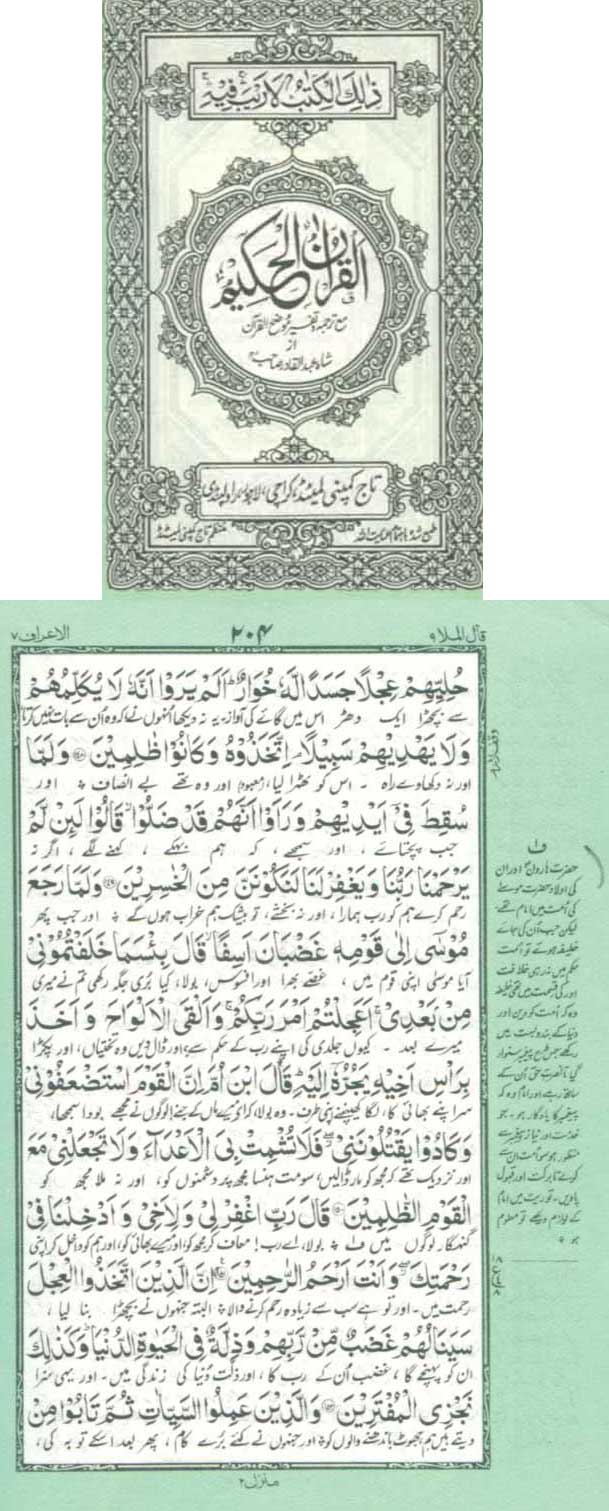 ذٰلِكَ الْكِتٰبُ لَا رَيْبَ فِيْهِ
اَلْقُرْاٰنُ الْحَكِيْمُ
مع ترجمہ و تفسیر موضح القرآن
از
شاہ عبد القادر صاحب
تاج کمپنی لمیٹڈ، کراچی، لاہور، راولپنڈی
طبع شدہ باہتمام عنایت اللہ
منظم تاج کمپنی لمیٹڈ
قال الملا ۹
۲۰۴
الاعراف ۷
حُلِيِّهِمْ عِجْلًا جَسَدًا لَّهٗ خُوَارٌ اَلَمْ يَرَوْا اَنَّهٗ لَا يُكَلِّمُهُمْ
سے بچھڑا ایک دھڑ اس میں گائے کی آواز یہ نہ دیکھا انہوں نے کہ وہ اُن سے بات نہیں کرتا
وَلَا يَهْدِيْهِمْ سَبِيْلًا اِتَّخَذُوْهُ وَكَانُوْا ظٰلِمِيْنَ وَلَمَّا
اور نہ دکھاوے راہ ۔ اس کو ٹھہرا لیا، (معبود) اور وہ تھے بے انصاف اور
سُقِطَ فِيْٓ اَيْدِيْهِمْ وَرَاَوْا اَنَّهُمْ قَدْ ضَلُّوْا قَالُوْا لَئِنْ لَّمْ
جب پچتائے ، اور سمجھے ، کہ ہم بہکے ، کہنے لگے ، اگر نہ
يَرْحَمْنَا رَبُّنَا وَيَغْفِرْ لَنَا لَنَكُوْنَنَّ مِنَ الْخٰسِرِيْنَ وَلَمَّا رَجَعَ
رحم کرے ہم کو رب ہمارا ، اور نہ بخشے ، تو بیشک ہم خراب ہوں گے اور جب پھر
مُوْسٰٓى اِلٰى قَوْمِهٖ غَضْبَانَ اَسِفًا قَالَ بِئْسَمَا خَلَفْتُمُوْنِيْ
آیا موسٰی اپنی قوم میں ، غصے بھرا اور افسوس ، بولا ، کیا بُری جگہ رکھی تم نے میری
مِنْۢ بَعْدِيْ اَعَجِلْتُمْ اَمْرَ رَبِّكُمْ وَاَلْقَى الْاَلْوَاحَ وَاَخَذَ
میرے بعد ۔ کیوں جلدی کی اپنے رب کے حکم سے ، اور ڈال دیں وہ تختیاں ، اور پکڑا
بِرَاْسِ اَخِيْهِ يَجُرُّهٗٓ اِلَيْهِ قَالَ ابْنَ اُمَّ اِنَّ الْقَوْمَ اسْتَضْعَفُوْنِيْ
سر اپنے بھائی کا ، لگا کھینچنے اپنی طرف ۔ وہ بولا ، کہ اے میری ماں کے جنے ! لوگوں نے مجھے بودا سمجھا ،
وَكَادُوْا يَقْتُلُوْنَنِيْ فَلَا تُشْمِتْ بِيَ الْاَعْدَآءَ وَلَا تَجْعَلْنِيْ مَعَ
اور نزدیک تھے کہ مجھ کو مار ڈالیں ، سو مت ہنسا مجھ پر دشمنوں کو ، اور نہ ملا مجھ کو
الْقَوْمِ الظّٰلِمِيْنَ قَالَ رَبِّ اغْفِرْ لِيْ وَلِاَخِيْ وَاَدْخِلْنَا فِيْ
گنہگار لوگوں میں ف بولا ، اے رب ! معاف کر مجھ کو ، اور میرے بھائی کو ، اور ہم کو داخل کر اپنی
رَحْمَتِكَ وَاَنْتَ اَرْحَمُ الرّٰحِمِيْنَ اِنَّ الَّذِيْنَ اتَّخَذُوا الْعِجْلَ
رحمت میں ۔ اور تو ہے سب سے زیادہ رحم کرنے والا البتہ جنہوں نے بچھڑا بنا لیا ،
سَيَنَالُهُمْ غَضَبٌ مِّنْ رَّبِّهِمْ وَذِلَّةٌ فِي الْحَيٰوةِ الدُّنْيَا وَكَذٰلِكَ
ان کو پہنچے گا ، غضب اُن کے رب کا ، اور ذلت دُنیا کی زندگی میں ۔ اور یہی سزا
نَجْزِي الْمُفْتَرِيْنَ وَالَّذِيْنَ عَمِلُوا السَّيِّاٰتِ ثُمَّ تَابُوْا مِنْۢ
دیتے ہیں ہم جھوٹ باندھنے والوں کو اور جنہوں نے کئے بُرے کام ، پھر بعد اسکے توبہ کی ،
ف۱
حضرت ہارون اور ان
کی اولاد حضرت موسٰے
کی اُمت میں امام تھے
لیکن جب اُن کی جائے
خلیفہ ہوئے تو اُمت
حکم میں نہ رہی خلافت
اور کی قسمت میں تھی خلیفہ
وہ کہ اُمت کو دین اور
دنیا کے بندوبست میں
رکھے جس طرح پیغمبر سنوار
گیا تا نصرتِ حق اُن کے
ساتھ رہے اور امام وہ کہ
پیغمبر کا یادگار ہو ۔ جو
خدمت اور نیاز پیغمبر سے
منظور ہو سو اُمت ان سے
کرے تا برکت اور قبول
پاویں ۔ توریت میں امام
کے لوازم دیکھے تو معلوم
ہو
منزل ۲